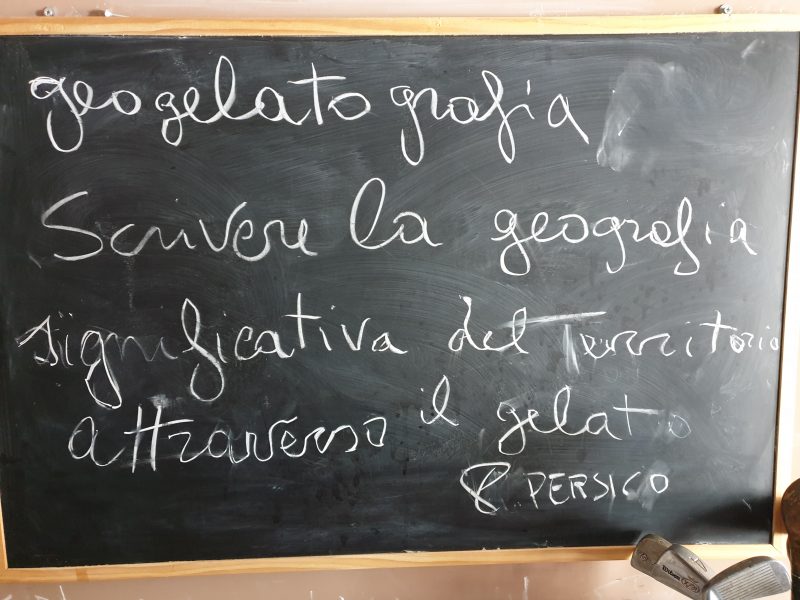 geogelatografia
Scrivere la geografia
significativa del Territorio
attraverso il gelato
PERSICO